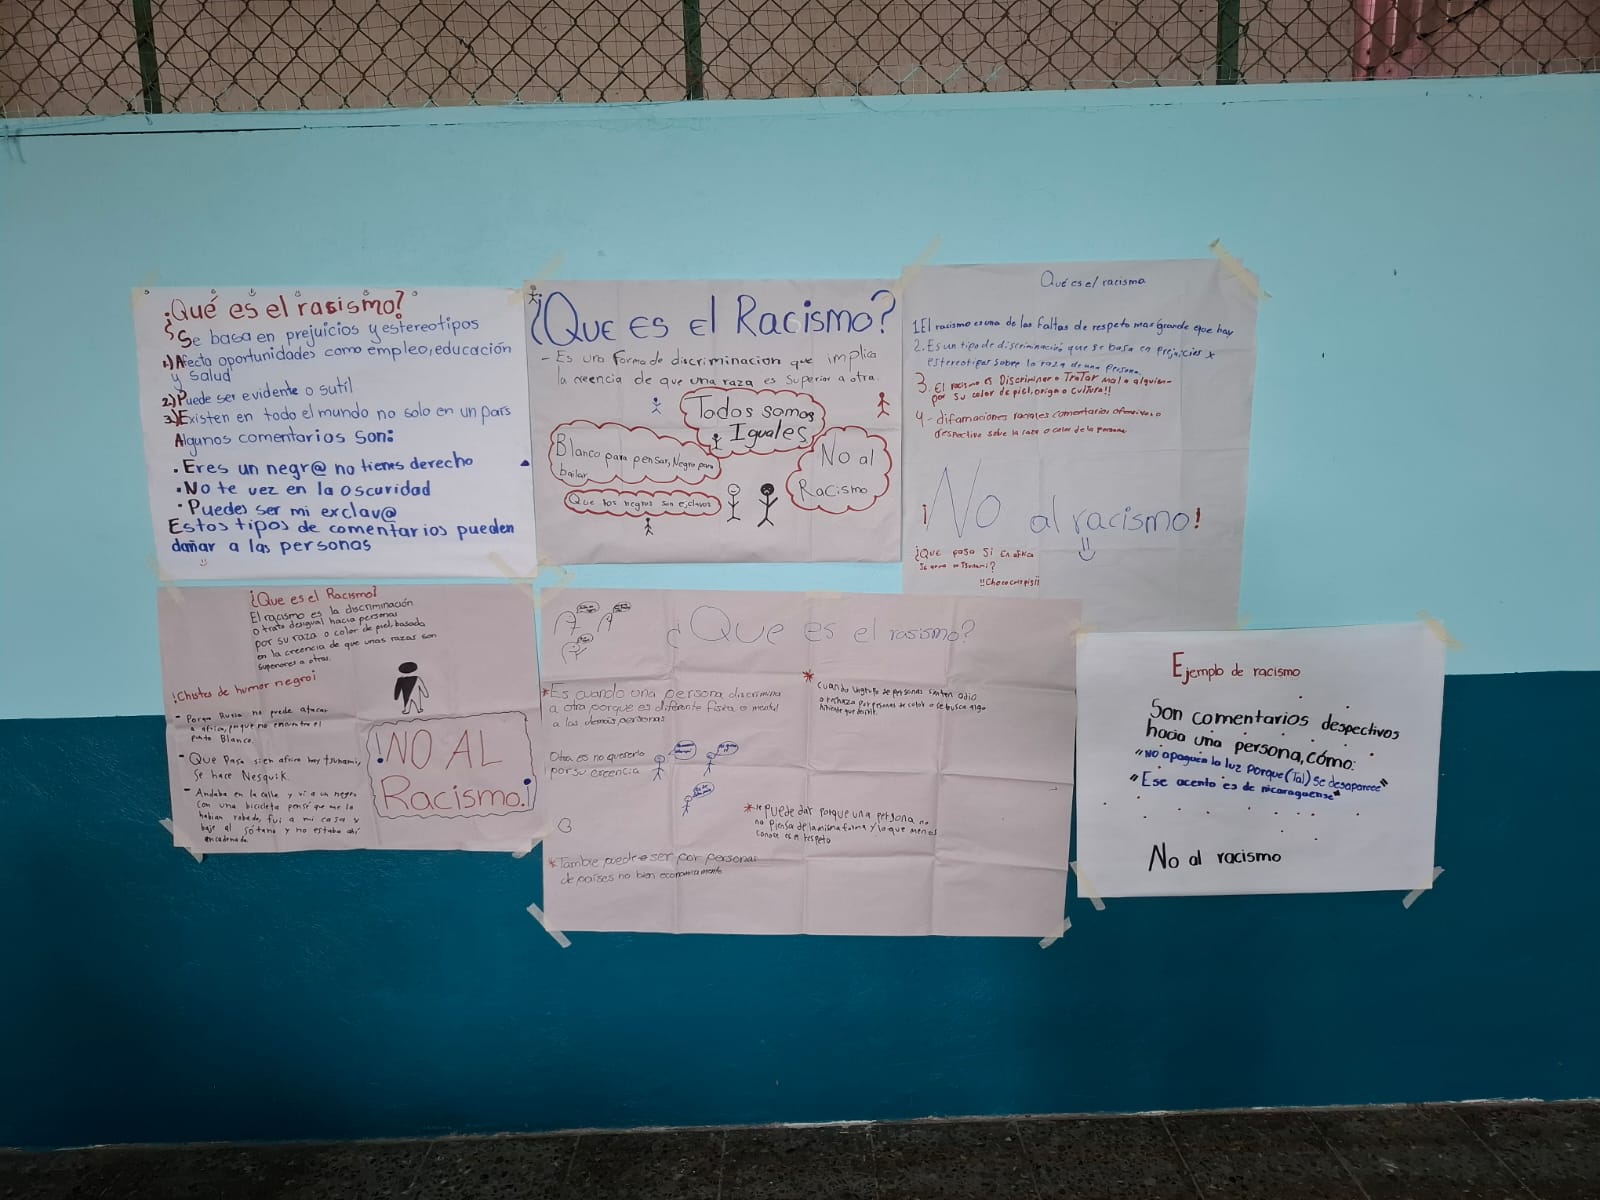 ¿Qué es el rasismo?
Se basa en prejuicios y estereotipos
1.) Afecta oportunidades como empleo, educación
y salud
2.) Puede ser evidente o sutil
3.) Existen en todo el mundo no solo en un pais
Algunos comentarios son:
. Eres un negr@ no tienes derecho
. No te vez en la oscuridad
. Puedes ser mi exclav@
Estos tipos de comentarios pueden
dañar a las personas
¿Que es el Racismo?
- Es una forma de discriminacion que implica
la creencia de que una raza es superior a otra.
Todos somos
Iguales
Blanco para pensar, Negro para
bailar
No al
Racismo
Que los negros son esclavos
Qué es el racismo
1. El racismo es una de las faltas de respeto mas grande que hay
2. Es un tipo de discriminación que se basa en prejuicios x
estereotipos sobre la raza de una persona.
3. El racismo es Discriminar o Tratar mal a alguien
por su color de piel, origen o cultura!!
4- difamaciones raciales comentarios ofensivos o
despectivo sobre la raza o color de la persona
¡No al racismo!
¿Que pasa si en africa
tsunami?
!!Chococrispis¡¡
¿Que es el Racismo?
El racismo es la discriminación
o trato desigual hacia personas
por su raza o color de piel, basado
en la creencia de que unas razas son
superiores a otras.
!Chistes de humor negro¡
- Porque Rusia no puede atacar
a africa, porque no encuentra el
punto Blanco.
- Que pasa si en africa hay tsunami,
se hace Nesquik.
- Andaba en la calle y vi a un negro
con una bicicleta pensé que me la
habian robado, fui a mi casa y
baje al sótano y no estaba ahí
encadenado.
¡NO AL
Racismo!
¿Que es el rasismo?
* Es cuando una persona discrimina
a otra porque es diferente fisica o mental
a las demas personas
* Cuando un grupo de personas sienten odio
o rechazo por personas de color o se busca algo
Otra es no quererlo
por su creencia
* se puede dar porque una persona no
no piensa de la misma forma y lo que menos
conoce es el respeto
* Tambie puedre ser por personas
de países no bien economicamente
Ejemplo de racismo
Son comentarios despectivos
hacia una persona, cómo:
"No apaguen la luz porque (Tal) se desaparece"
"Ese acento es de nicaraguense"
No al racismo